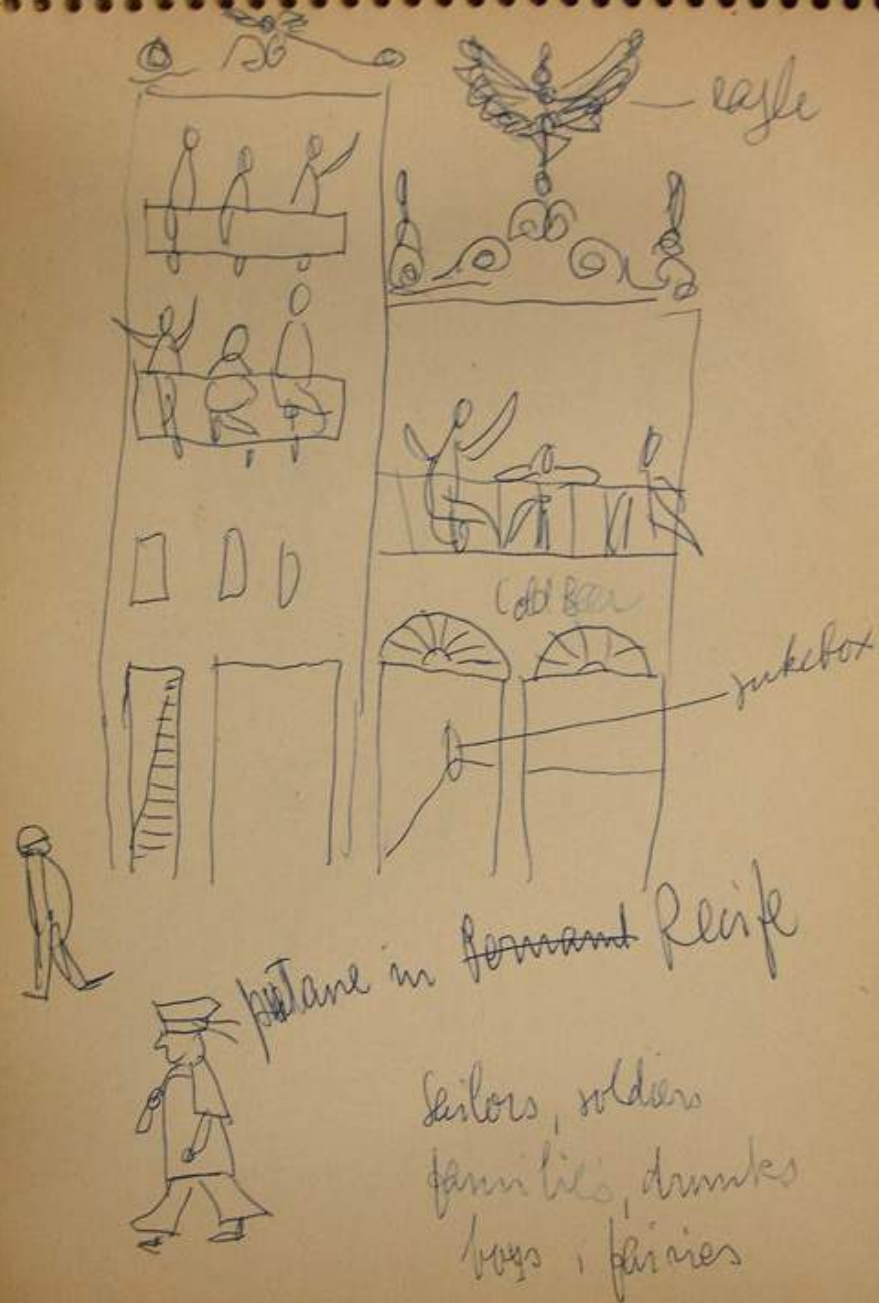 eagle
Cold Beer
jukebox
putane in Pernamb Recife
Sailors, soldiers
families, drunks
boys, fairies